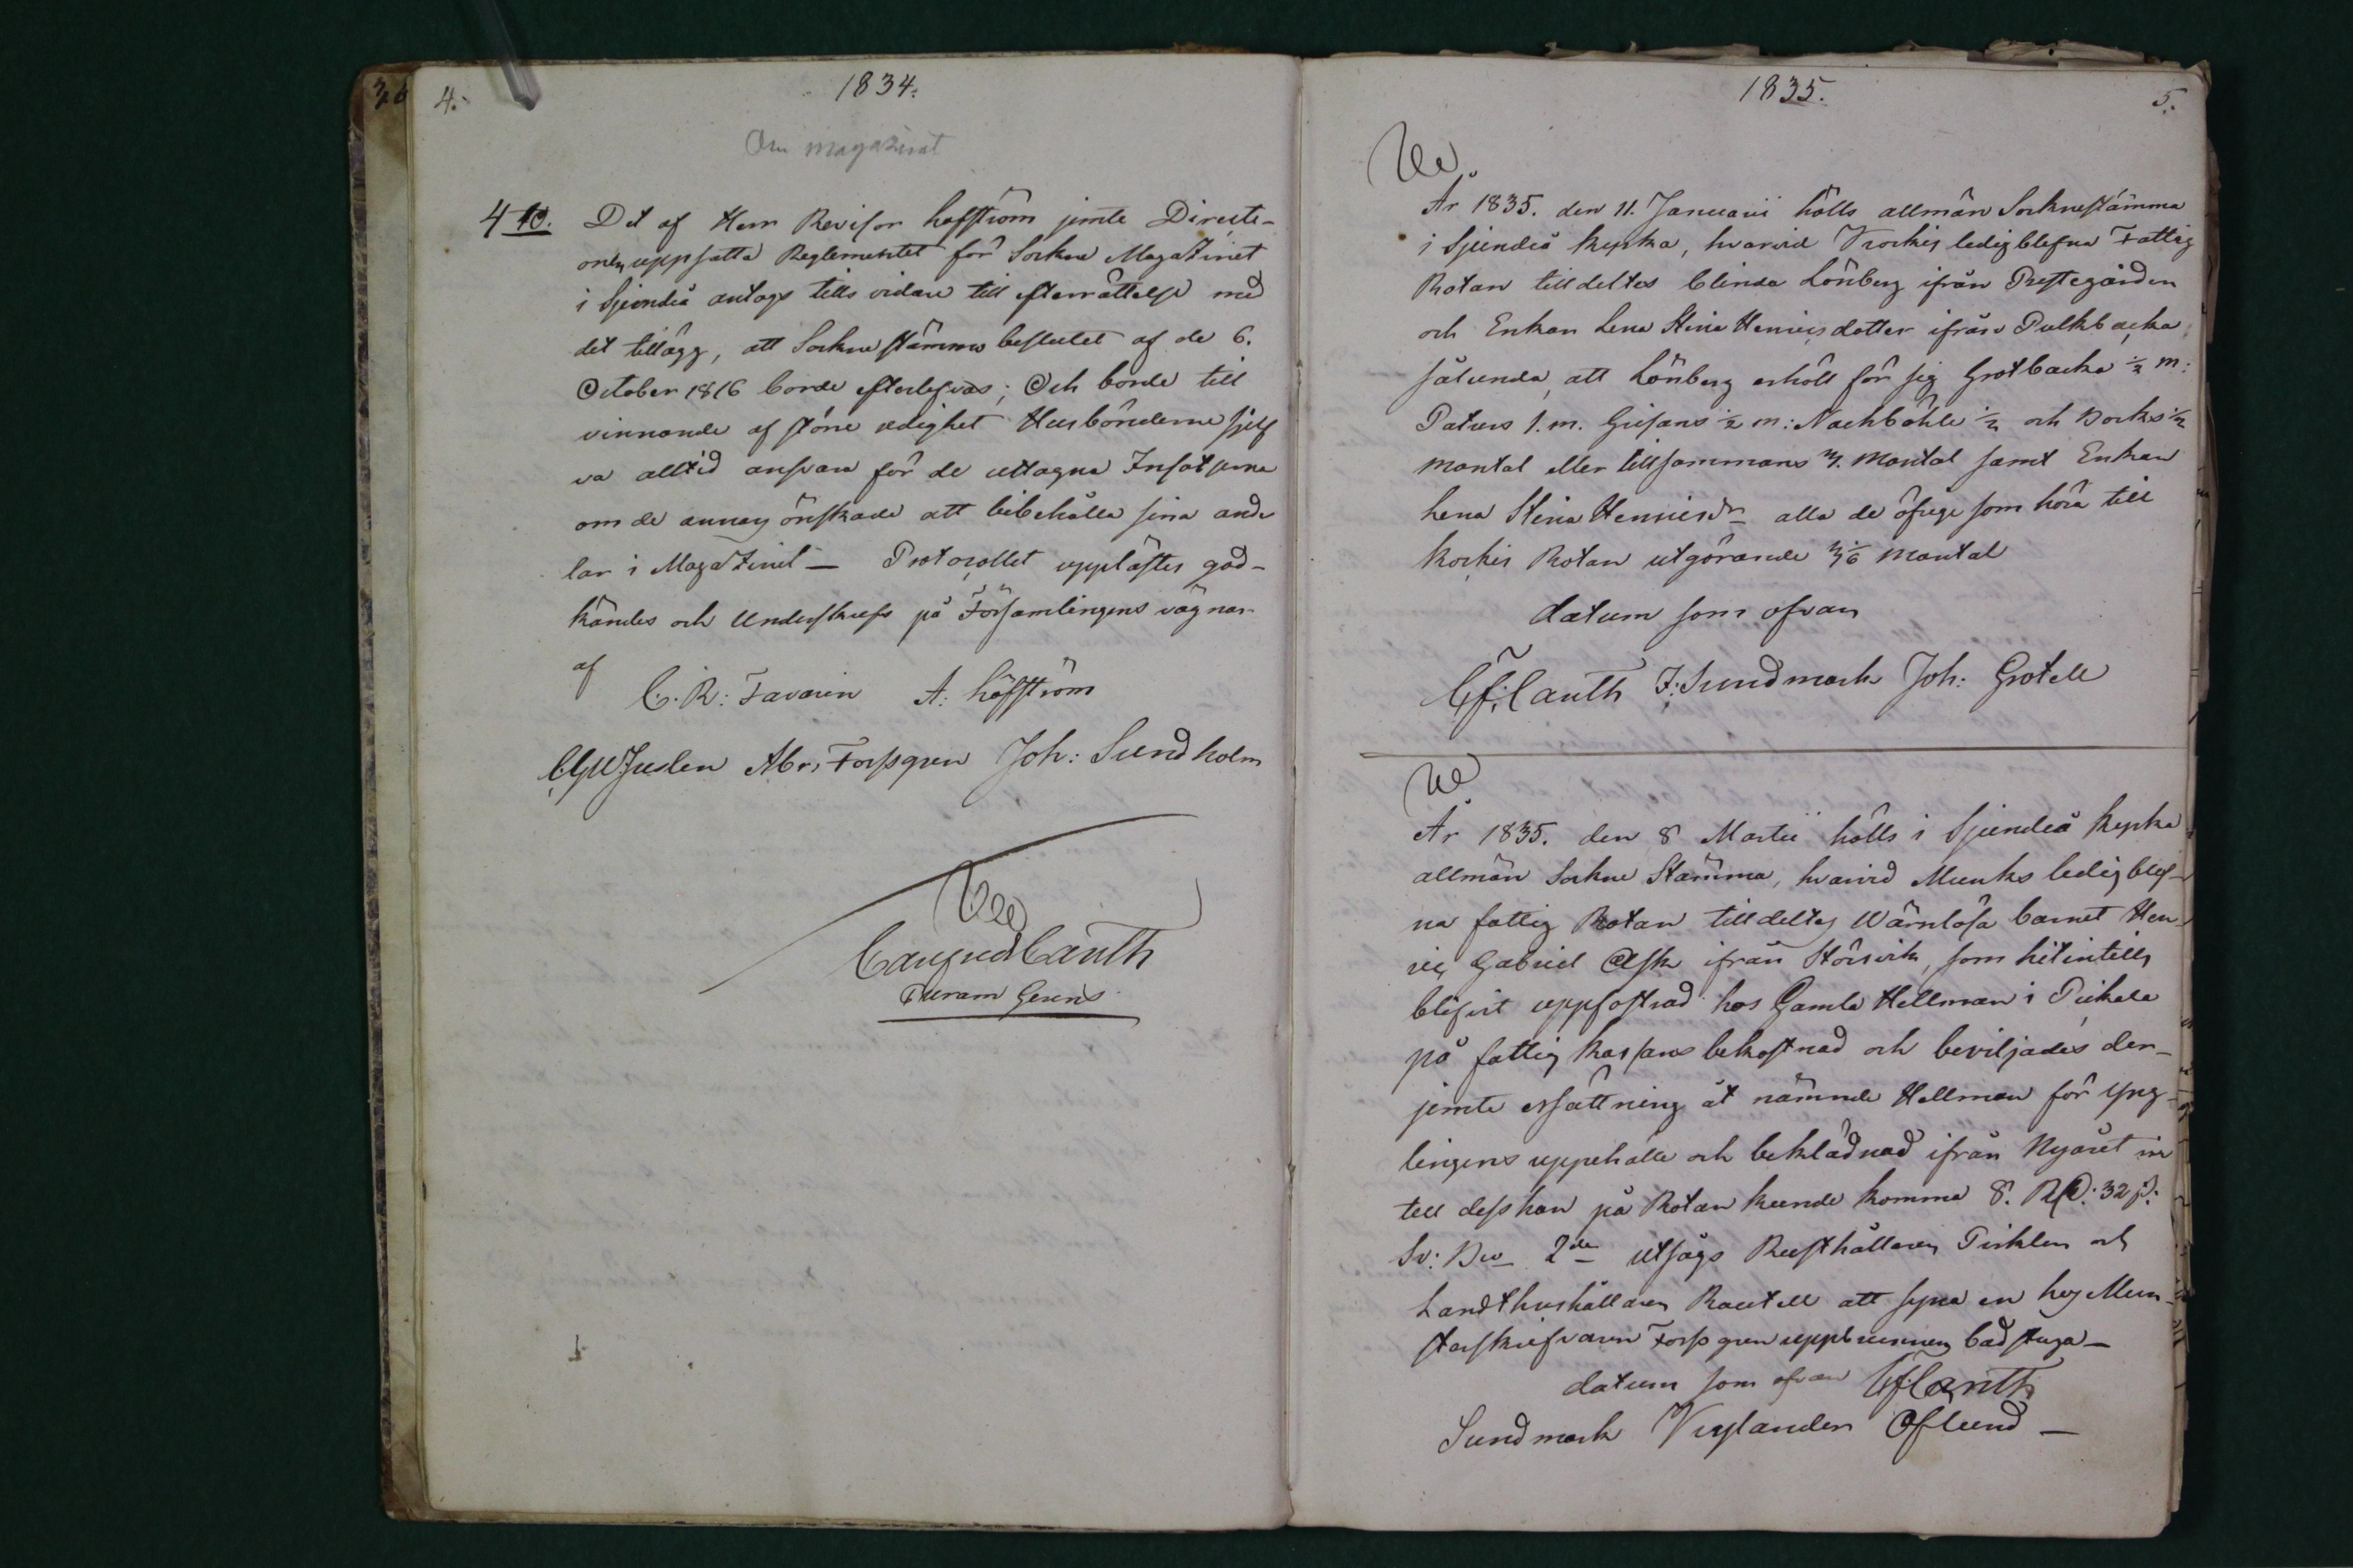 4.
1834.
Om magazinet
4 to. Det af Herr Revisor Hoffström jemte Directi-
onen uppsatta Reglementet för Sockne Magazinet
i Sjundeå antogs tills vidare till efterrättelse med
det tillägg, att Sockne stämmo beslutet af de 6.
October 1816 borde efterlefvas; Och borde till
vinnande af större redighet Husbönderne sjelf
va alltid ansvara för de uttagna Insatserna
om de annars önskade att bibehålla sina ande
lar i Magazinet — Protocollet upplästes god-
kändes och Underskrefs på Församlingens vägnar
af
C. R: Favorin A: Höffström
Juslen Abr: Forssgren Joh: Sundholm
Cauth
1835.
5.
År 1835. den 11. Januarii hölls allmän Socknestämma
i Sjundeå Kyrka, hvarvid Krockis ledigblefna Fattig
Rotan tilldeltes blinda Lönberg ifrån Prestegården
och Enkan Lena Stina Henricsdotter ifrån Pulkbacka
sålunda, att Lönberg erhöll för sig Grotbacka ½ m:
Paturs 1. m. Grisans ½ m: Nackböhle ½ och Borks ½
mantal eller tillsammans 3. Mantal samt Enkan
Lena Stina Henricsdr alla de öfrige som höra till
Kockis Rotan utgörande Mantal
datum som ofvan
Cauth F: Sundmark Joh: Grotell
År 1835. den 8 Martii hölls i Sjundeå Kyrka
allmän Sockne Stämma, hvarvid Munks ledig blef-
na fattig Rotan tilldeltes Wärnlösa barnet Hen-
ric Gabriel Ask ifrån Störsvik, som hitintills
blifvit uppfostrad hos Gamla Hellman i Pickala
på fattig Kassans bekostnad och beviljades der-
jemte ersättning åt nämnde Hellman för yng-
lingens uppehälle och beklädnad ifrån Nyåret in
till dess han på Rotan kunde komma 8. RD: 32 s:
Sv: Bco 2do utsågs Rusthållaren Picklen och
Landthushållaren Rautell att syna en hos Mun-
sterskrifvaren Forssgren uppbrunnen badstuga —
datum som ofvan Cauth
Sundmark Nylander Öflund —